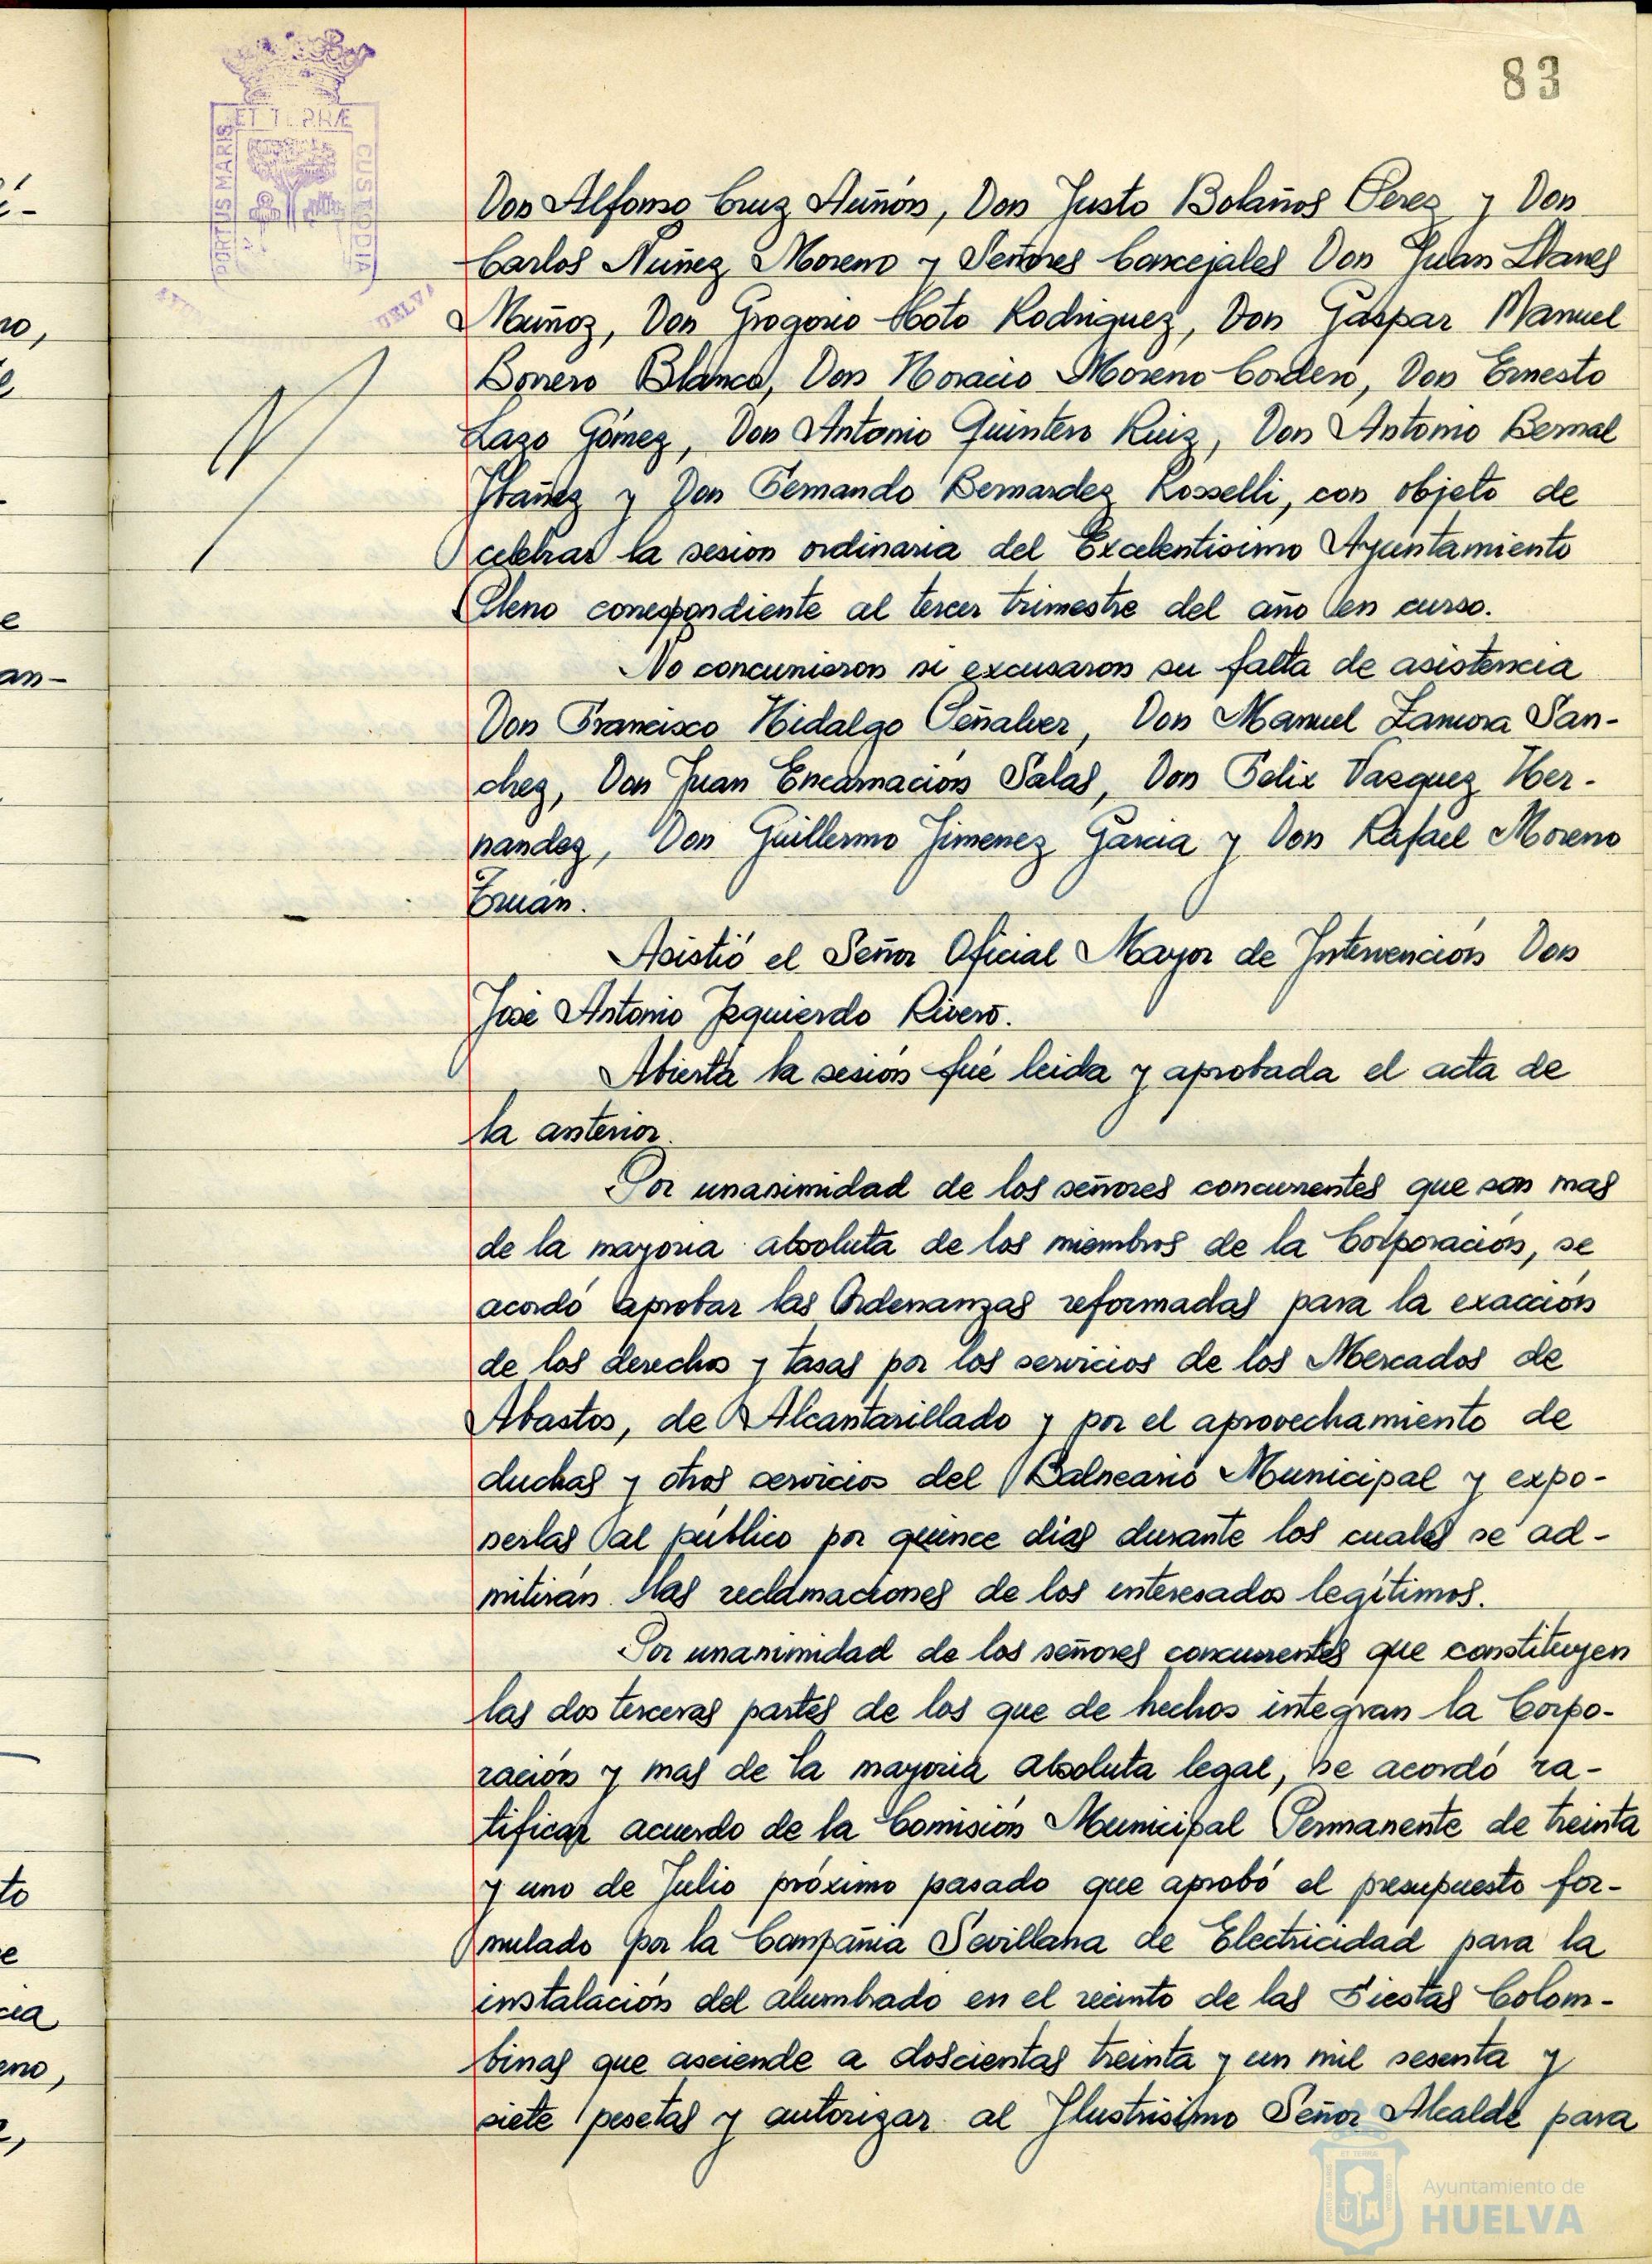 83
ET TERRÆ
PORTUS MARIS
CUSTODIA
Don Alfonso Cruz Auñón, Don Justo Bolaños Perez y Don
Carlos Nuñez Moreno y Señores Concejales Don Juan Llanes
Muñoz, Don Grogorio Moto Rodriguez, Don Gaspar Manuel
Borrero Blanco, Don Horacio Moreno Cordero, Don Ernesto
Lazo Gómez, Don Antonio Quintero Ruiz, Don Antonio Bernal
Ybañez y Don Fernando Bernardez Rosselli, con objeto de
celebrar la sesion ordinaria del Excelentisimo Ayuntamiento
Pleno correspondiente al tercer trimestre del año en curso.
No concurrieron ni excusaron su falta de asistencia
Don Francisco Hidalgo Peñalver, Don Manuel Zamora San-
chez, Don Juan Encarnación Salas, Don Felix Vazquez Her-
nandez, Don Guillermo Jimenez Garcia y Don Rafael Moreno
Eruán.
Asistió el Señor Oficial Mayor de Intervención Don
José Antonio Izquierdo Rivero.
Abierta la sesión fué leida y aprobada el acta de
la anterior.
Por unanimidad de los señores concurrentes que son mas
de la mayoria absoluta de los miembros de la Corporación, se
acordó aprobar las Ordenanzas reformadas para la exacción
de los derechos y tasas por los servicios de los Mercados de
Abastos, de Alcantarillado y por el aprovechamiento de
duchas y otros servicios del Balneario Municipal y expo-
nerlas al público por quince dias durante los cuales se ad-
mitirán las reclamaciones de los interesados legítimos.
Por unanimidad de los señores concurrentes que constituyen
las dos terceras partes de los que de hechos integran la Corpo-
ración y mas de la mayoria absoluta legal, se acordó ra-
tificar acuerdo de la Comisión Municipal Permanente de treinta
y uno de Julio próximo pasado que aprobó el presupuesto for-
mulado por la Compañia Sevillana de Electricidad para la
instalación del alumbrado en el recinto de las Fiestas Colom-
binas que asciende a doscientas treinta y un mil sesenta y
siete pesetas y autorizar al Ilustrisimo Señor Alcalde para
Ayuntamiento de
HUELVA